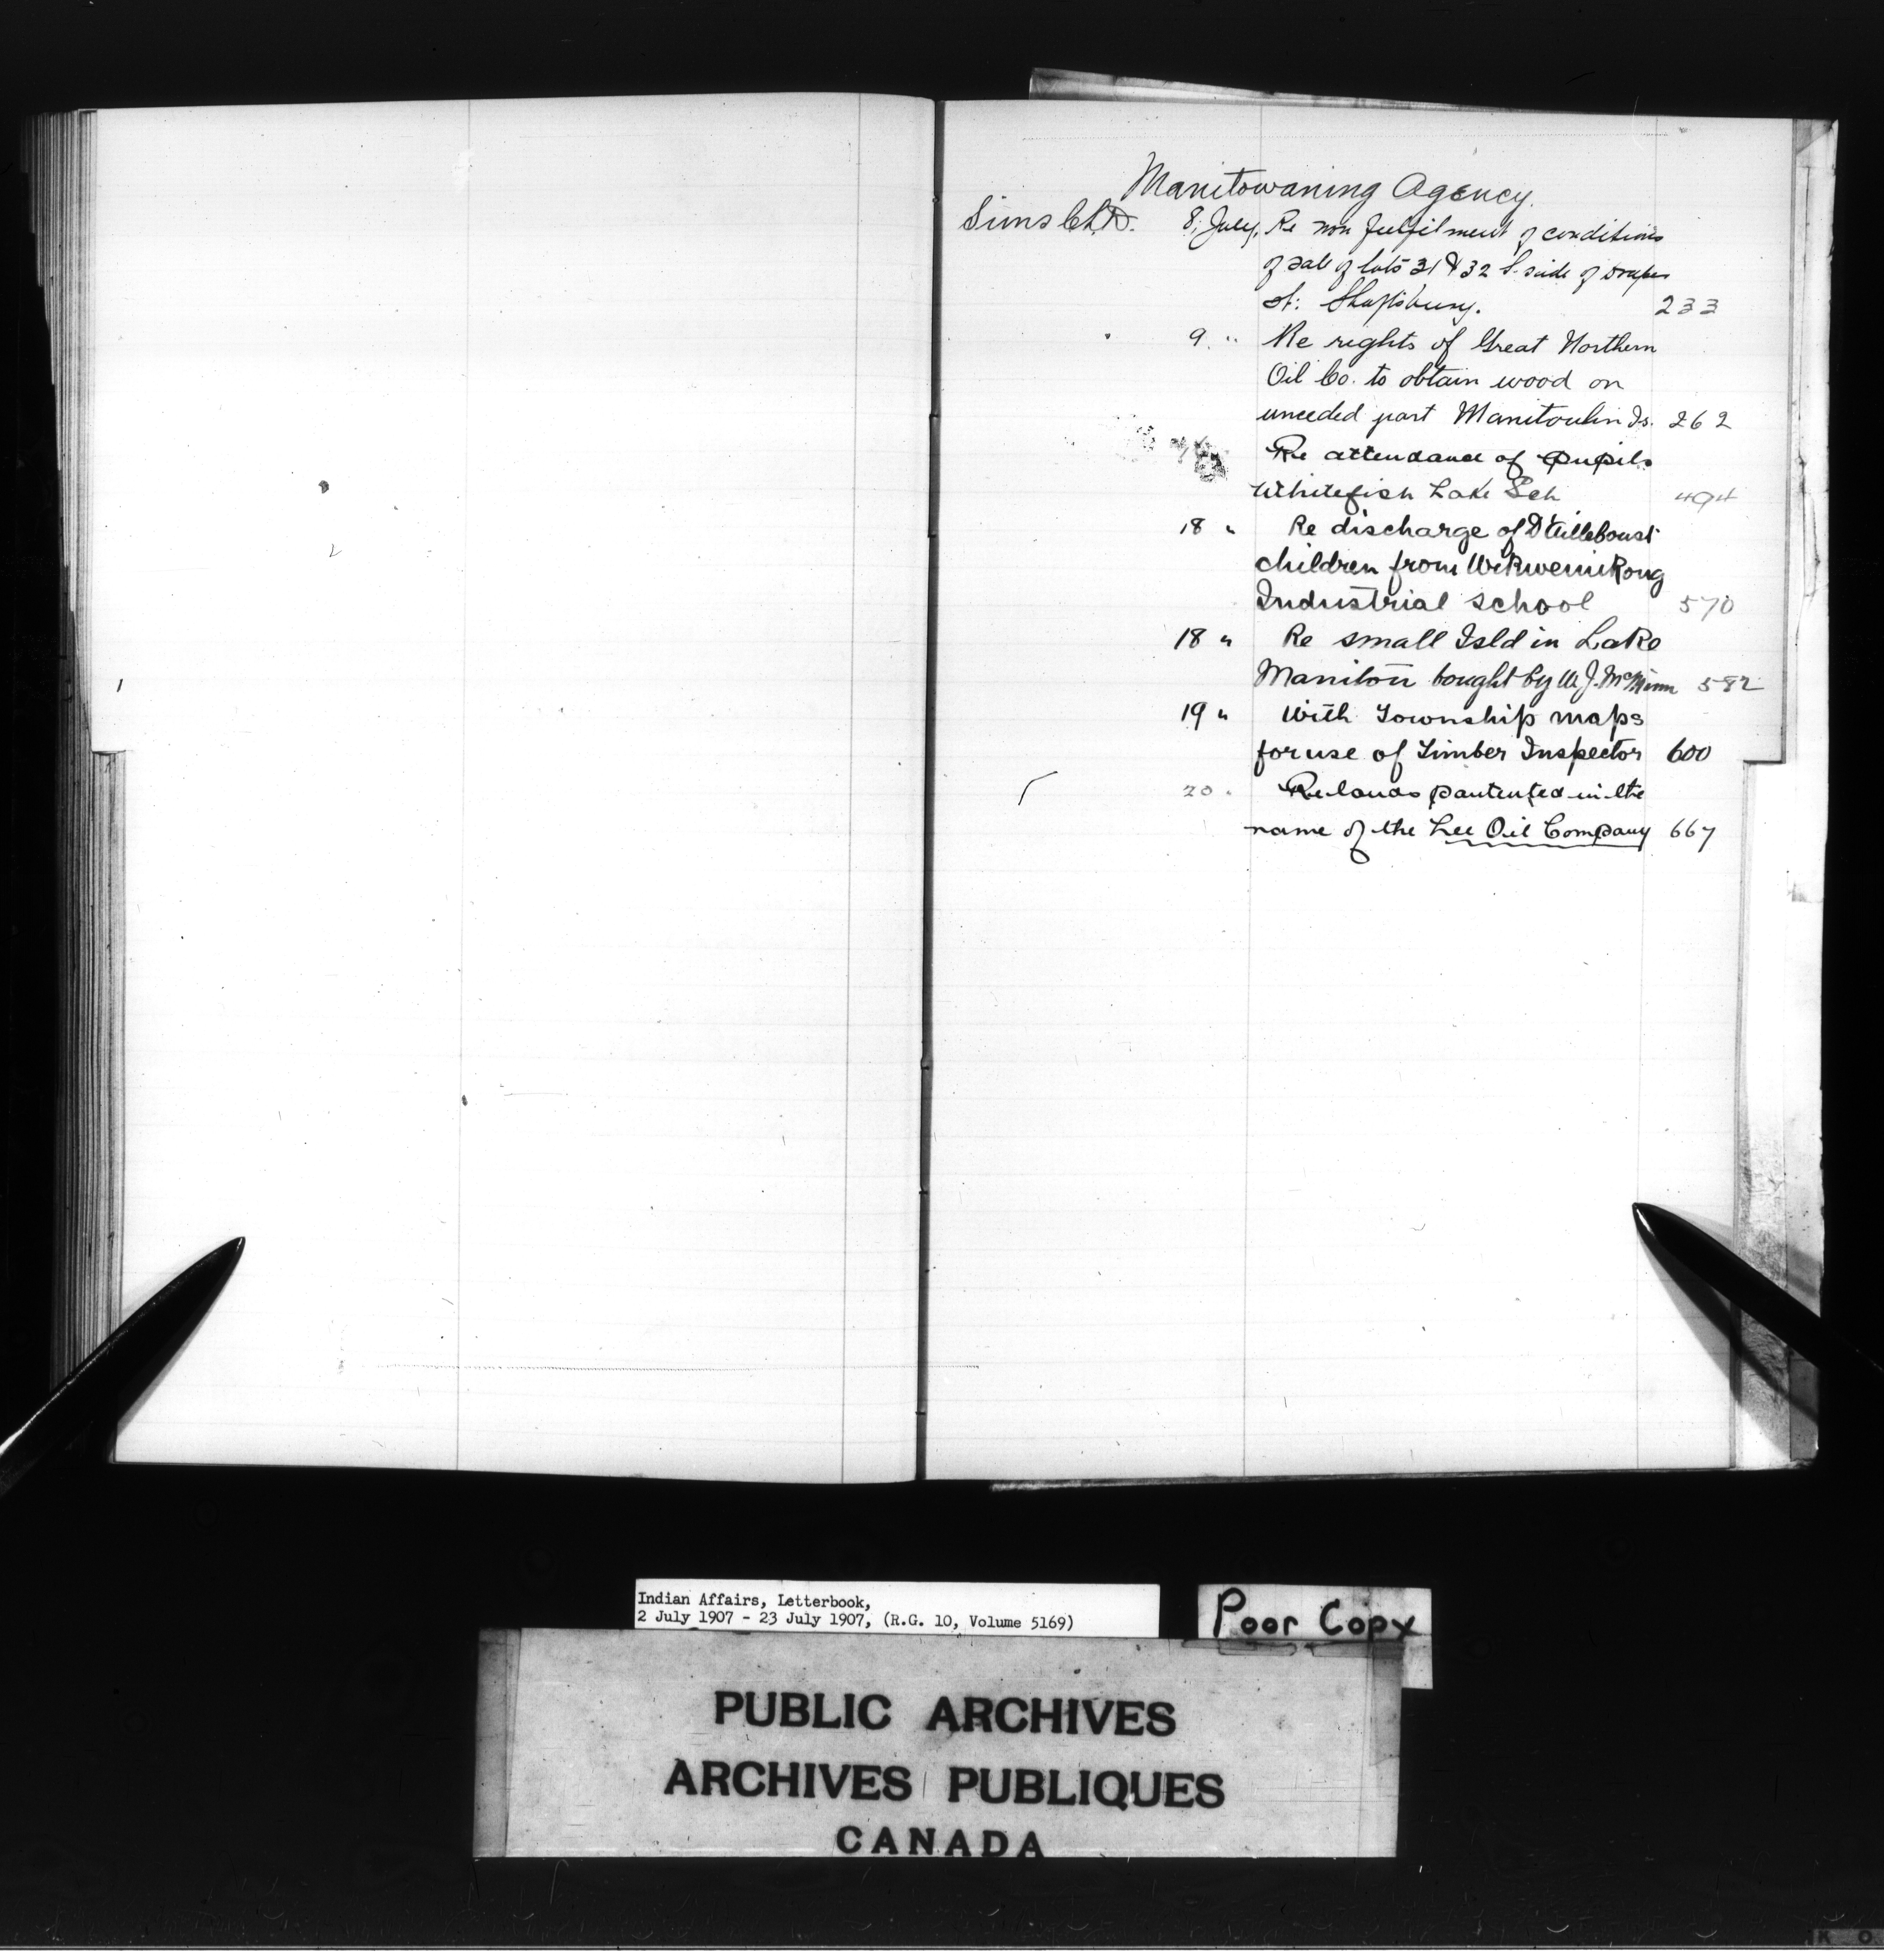 Manitowaning Agency.
Sims Ch. D. 8, July, Re non fulfilment of conditions
of sale of lots 31 & 32 S. side of Draper
St: Shaftsbury. 233
9. " Re rights of Great Northern
Oil Co. to obtain wood on
unceded part Manitoulin Is. 262
Re attendance of Pupils
Whitefish Lake Sch 494
18 " Re discharge of D'Ailleboust
children from Wikwemikong
Industrial School 570
18 " Re small Isld in Lake
Manitou bought by W. J. 582
19 " With Township maps
for use of Timber Inspector 600
20 " Re lands pantented in the
name of the Lee Oil Company 667
Indian Affairs, Letterbook,
2 July 1907 - 23 July 1907, (R.G. 10, Volume 5169)
Poor Copy
PUBLIC ARCHIVES
ARCHIVES PUBLIQUES
CANADA